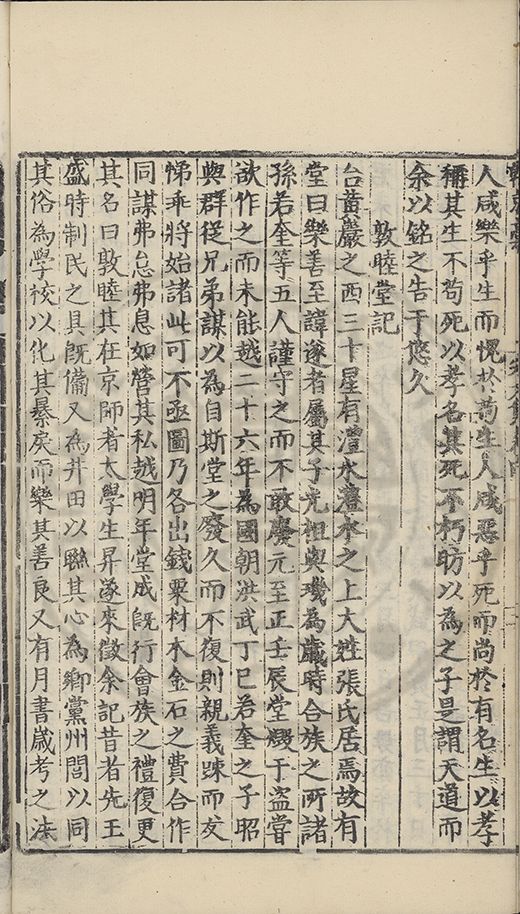 人咸樂乎生而愧於苟生人咸惡乎死而尚於有名生以孝
稱其生不苟死以孝名其死不朽昉以為之子是謂天道而
余以銘之告于悠久
敦睦堂記
台黃巖之西三十里有澧水澧水之上大姓張氏居焉故有
堂曰樂善至諱遂者屬其子光祖與璣為歲時合族之所諸
孫若奎等五人謹守之而不敢廢元至正壬辰堂燬于盜嘗
欲作之而未能越二十六年為國朝洪武丁巳若奎之子昭
與群從兄弟謀以為自斯堂之廢久而不復則親義踈而友
悌乖將始諸此可不亟圖乃各出錢粟材木金石之費合作
同謀弗怠弗息如營其私越明年堂成旣行會族之禮復更
其名曰敦睦其在京師者太學生昇遂來徵余記昔者先王
盛時制民之具旣備又為井田以聯其心為鄉黨州閭以同
其俗為學校以化其暴戾而樂其善良又有月書歲考之法